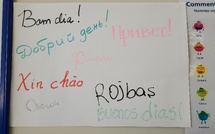 Bom dia!
Добрий день!
Привет!
Xin chào
Rojbaş
Buenos días!
Comment